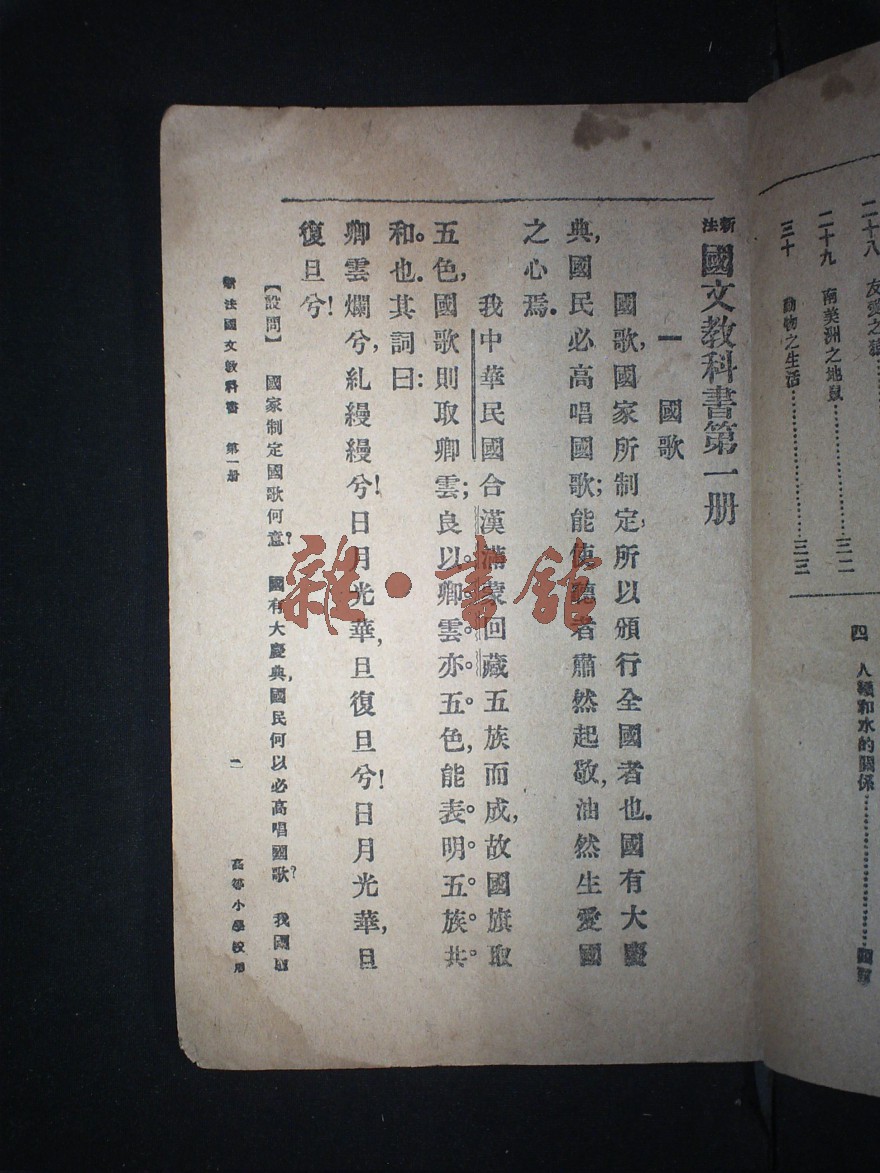 二十八 友愛之
二十九 南美洲之地鼠……三二
三十 動物之生活……三三
四 人類和水的關係……
新法國文教科書第一册
一 國歌
國歌,國家所制定,所以頒行全國者也.國有大慶
典,國民必高唱國歌;能使聽者肅然起敬,油然生愛國
之心焉.
我中華民國合漢滿蒙回藏五族而成,故國旗取
五色,國歌則取卿雲;良以卿雲亦五色,能表明五族共
和也.其詞曰:
卿雲爛兮,糺縵縵兮!日月光華,旦復旦兮!日月光華,旦
復旦兮!
【設問】 國家制定國歌何意? 國有大慶典,國民何以必高唱國歌? 我國取
新法國文教科書 第一册 一 高等小學校用
雜·書館